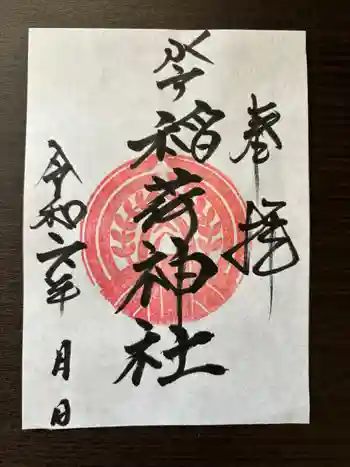 奉拝
稲荷神社
令和六年 月 日